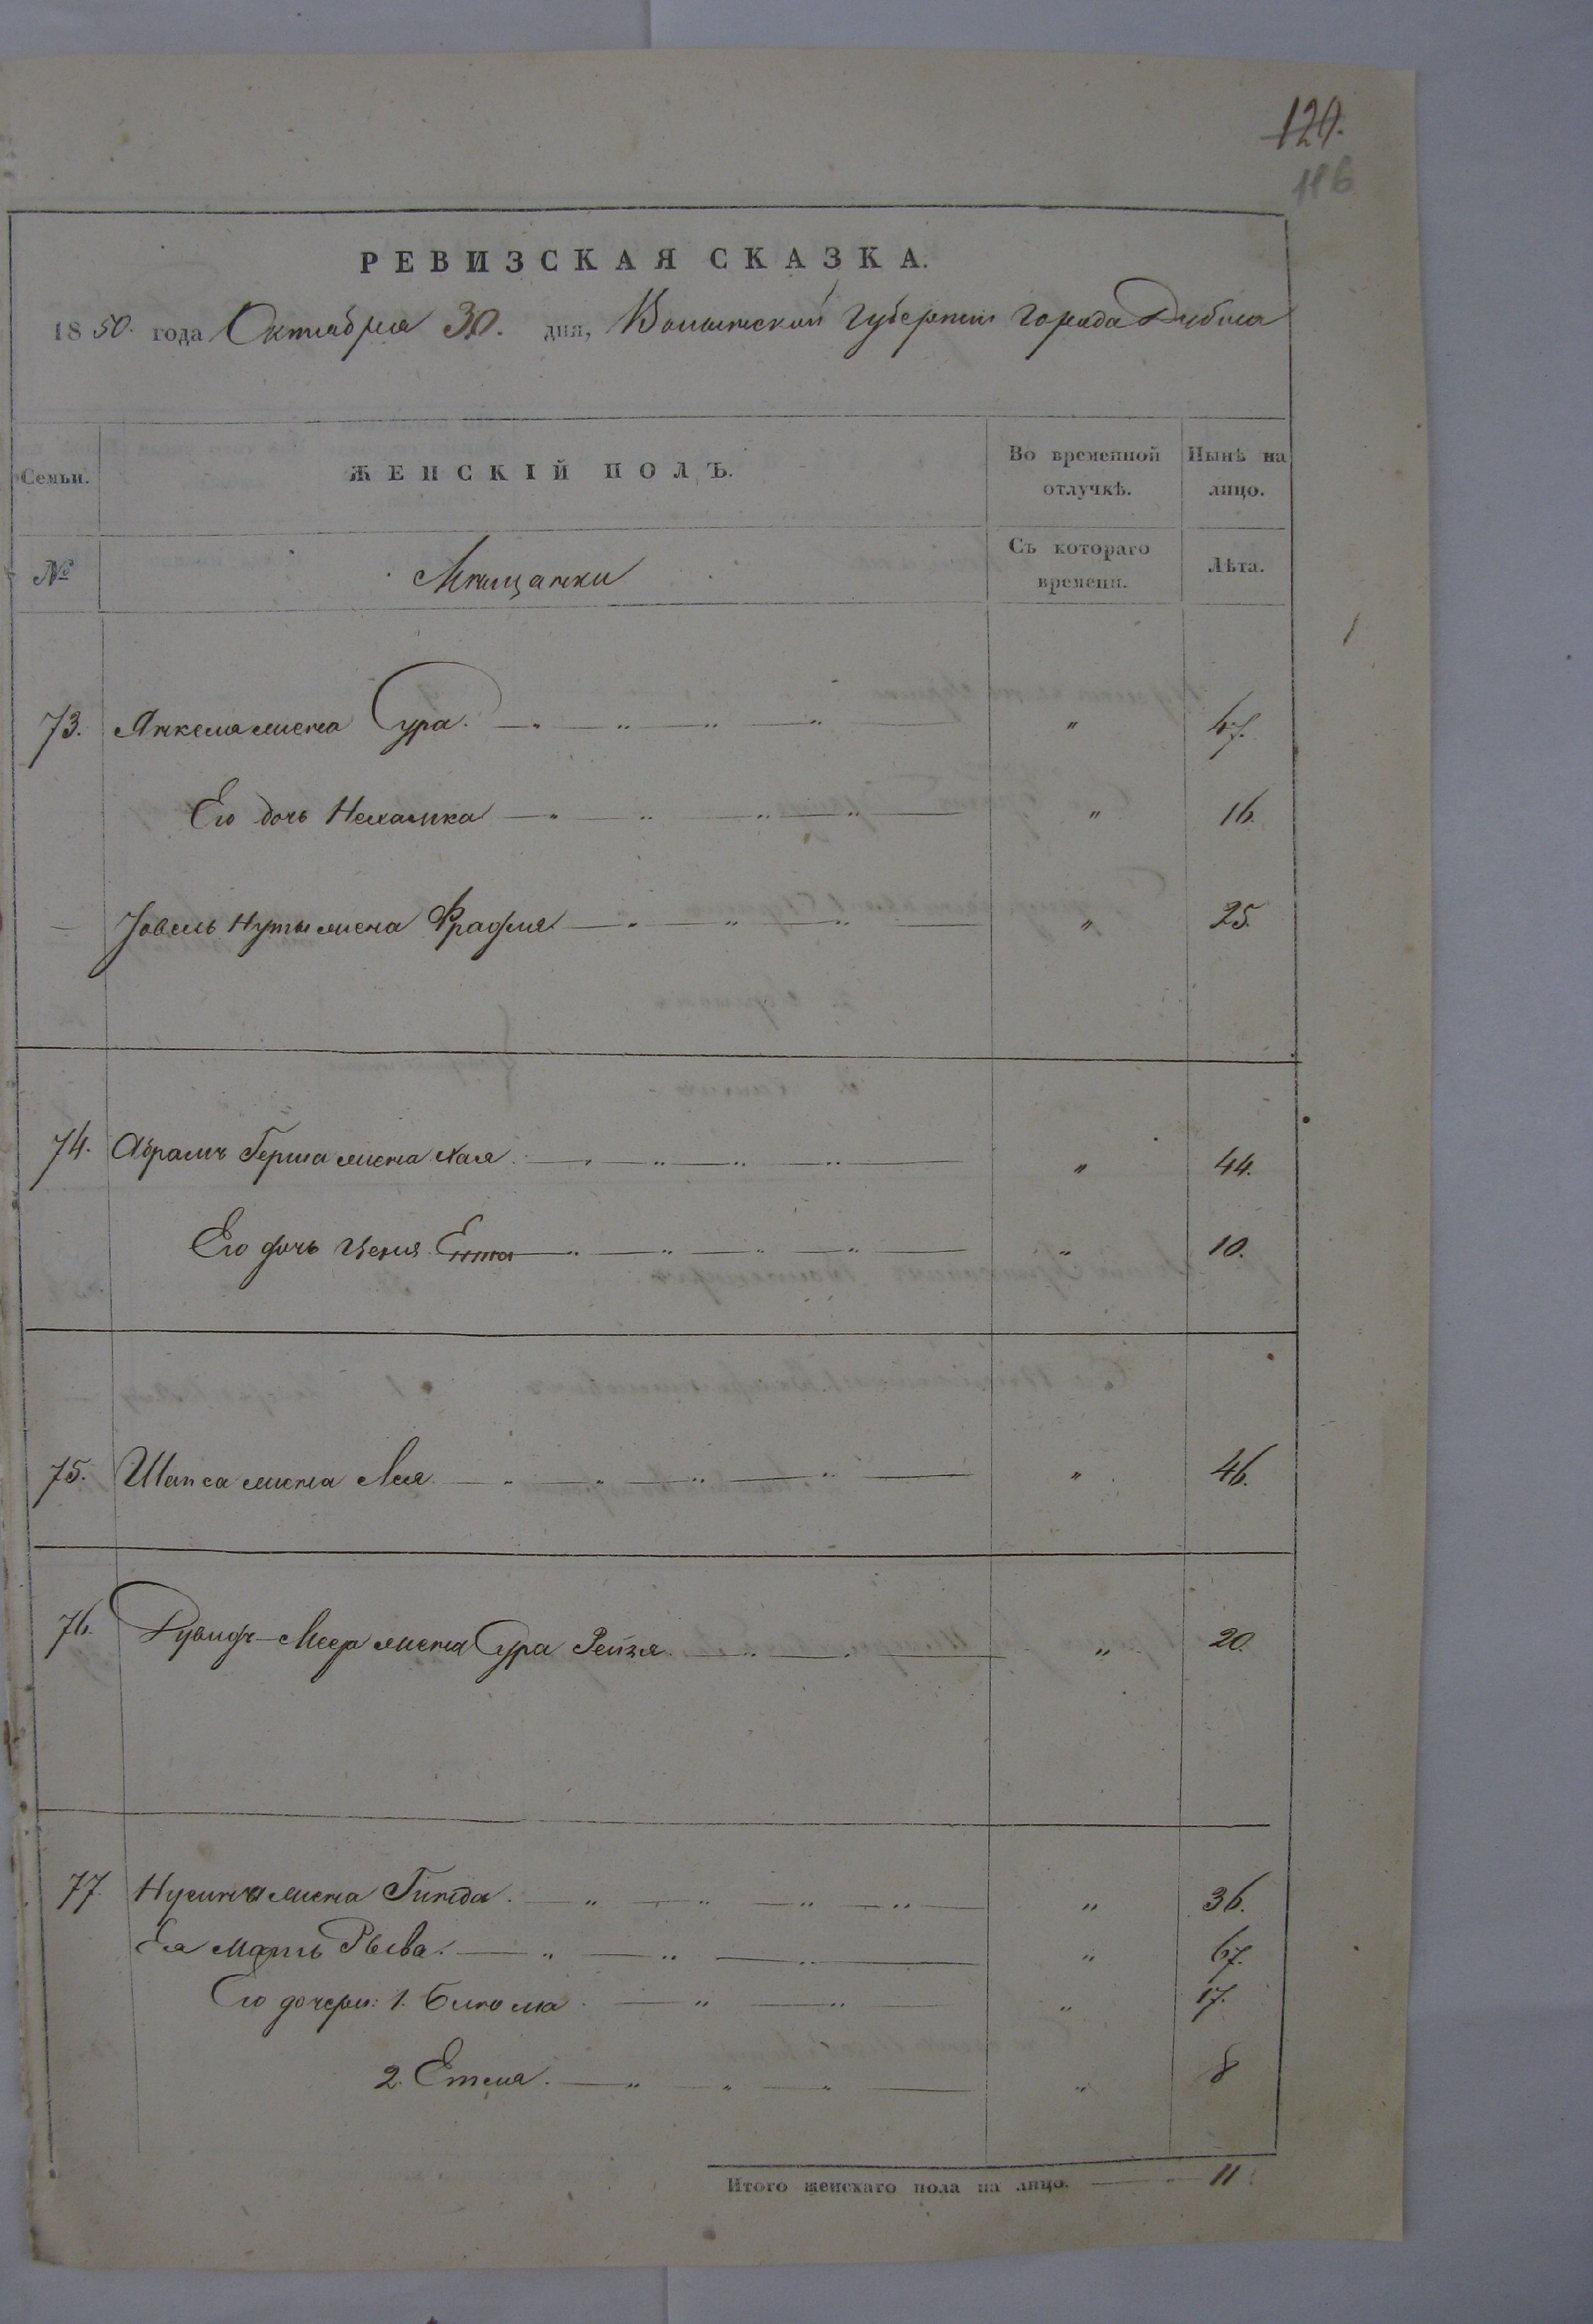 120.
116
РЕВИЗСКАЯ СКАЗКА.
1850. года Октября 30. дня, Волынской губернии города Дубна
Семьи. ЖЕНСКІЙ ПОЛЪ. Во временной отлучкѣ. Нынѣ на лицо.
№ Мѣщанки Съ котораго времени. Лѣта.
73. Янкеля жена Сура. — „ — „ — „ — „ — „ 47.
Его дочь Нехамка — „ — „ — „ — „ — „ 16.
— Іовель Нуты жена Фрадля — „ — „ — „ — „ 25.
74. Абрамъ Герша жена Хая. — „ — „ — „ — „ — „ 44.
Его дочь Ента — „ — „ — „ — „ — „ 10.
75. Шапса жена Лея. — „ — „ — „ — „ — „ 46.
76. Меера жена Сура Рейзя. — „ — „ — „ 20.
77. Нусина жена Гитда. — „ — „ — „ — „ — „ 36.
Ея мать Рыва. — „ — „ — „ — „ 67.
Его дочери: 1. — „ — „ — „ 17.
2. Етля. — „ — „ — „ — „ 8
Итого женскаго пола на лицо. — „ — 11.